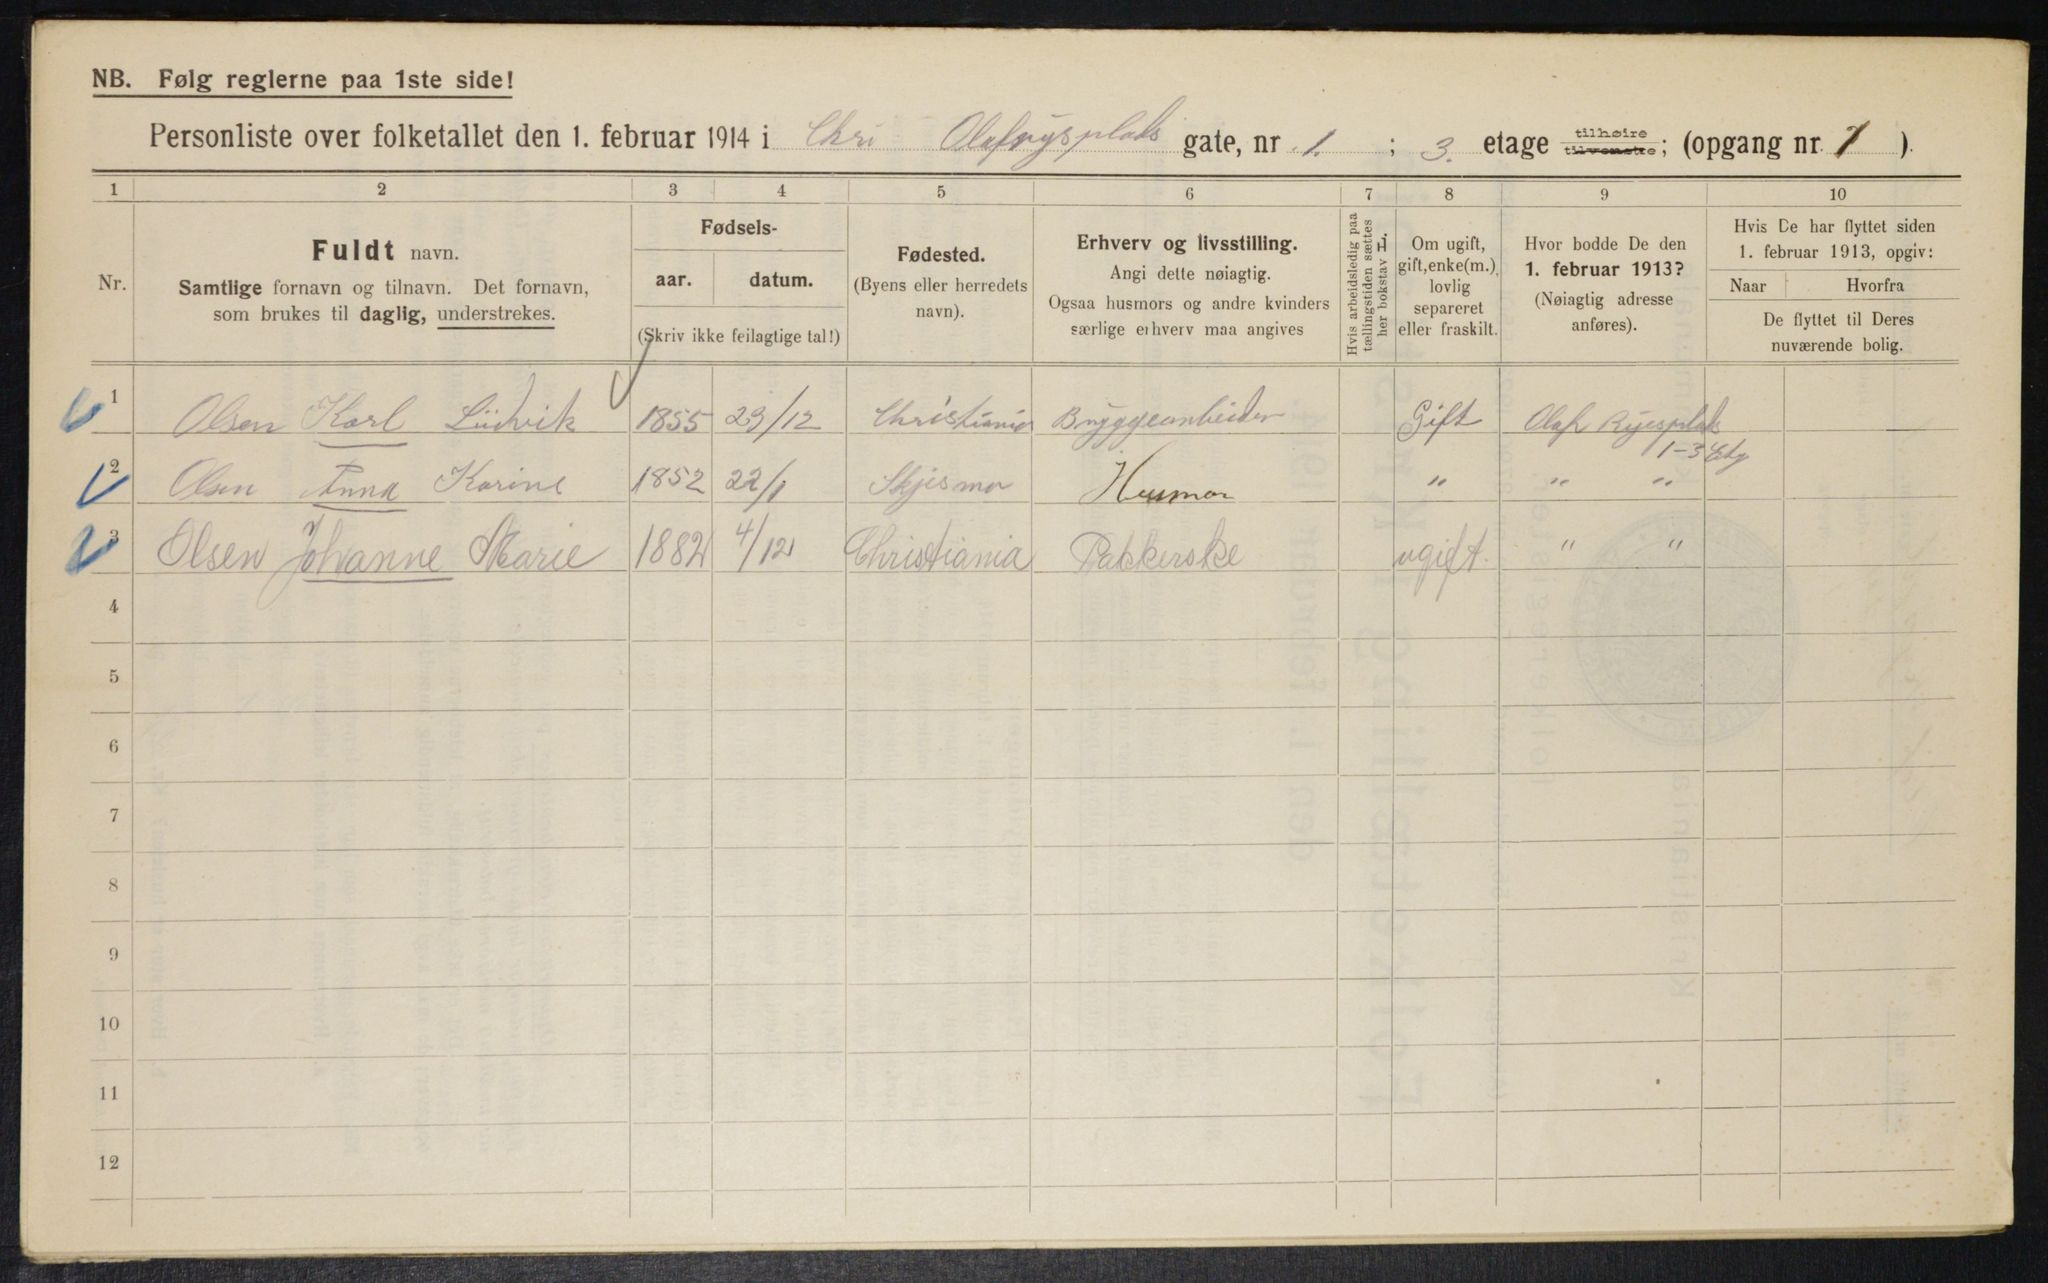 NB. Følg reglerne paa 1ste side!
Personliste over folketallet den 1. februar 1914 i Chri Olafrysplads gate, nr. 1. ; 3. etage tilhøire tilvenstre; (opgang nr. 1 ).
1 2 3 4 5 6 7 8 9 10
Nr.
Fuldt navn.
Samtlige fornavn og tilnavn. Det fornavn,
som brukes til daglig, understrekes.
Fødsels-
aar. datum.
(Skriv ikke feilagtige tal!)
Fødested.
(Byens eller herredets
navn).
Erhverv og livsstilling.
Angi dette nøiagtig.
Ogsaa husmors og andre kvinders
særlige erhverv maa angives
Hvis arbeidsledig paa
tællingstiden sættes
her bokstav L.
Om ugift,
gift, enke(m.),
lovlig
separeret
eller fraskilt.
Hvor bodde De den
1. februar 1913?
(Nøiagtig adresse
anføres).
Hvis De har flyttet siden
1. februar 1913, opgiv:
Naar Hvorfra
De flyttet til Deres
nuværende bolig.
1 Olsen Karl Ludvik 1855 23/12 Christiania Bryggearbeider Gift Olaf Ryesplads
1-3 Etg
2 Olsen Anna Karine 1852 22/1 Husmor " " "
3 Olsen Johanne Marie 1882 4/12 Christiania Pakkerske ugift. " "
4
5
6
7
8
9
10
11
12